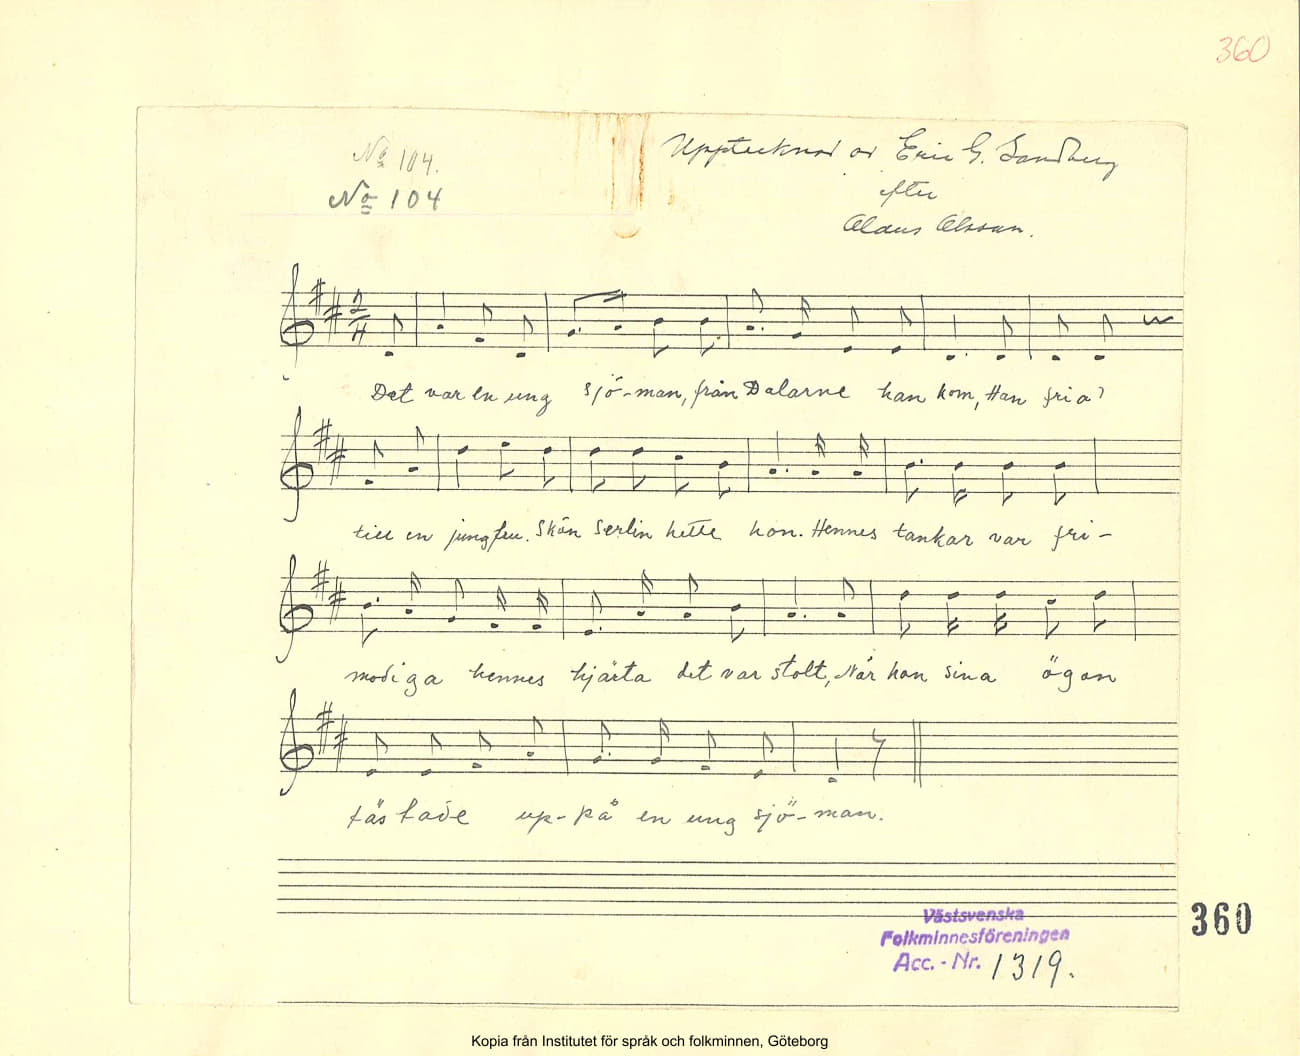 360
No 104.
No 104
Upptecknad av Eric G. Sandberg
efter
Olaus Olsson.
2/4
Det var en ung sjö-man, från Dalarne han kom, Han fria'
till en jungfru. Skön Serlin hette hon. Hennes tankar var fri-
modiga hennes hjärta det var stolt, När hon sina ögon
fästade up-på en ung sjö-man.
Västsvenska
Folkminnesföreningen
Acc.-Nr. 1319.
360
Kopia från Institutet för språk och folkminnen, Göteborg